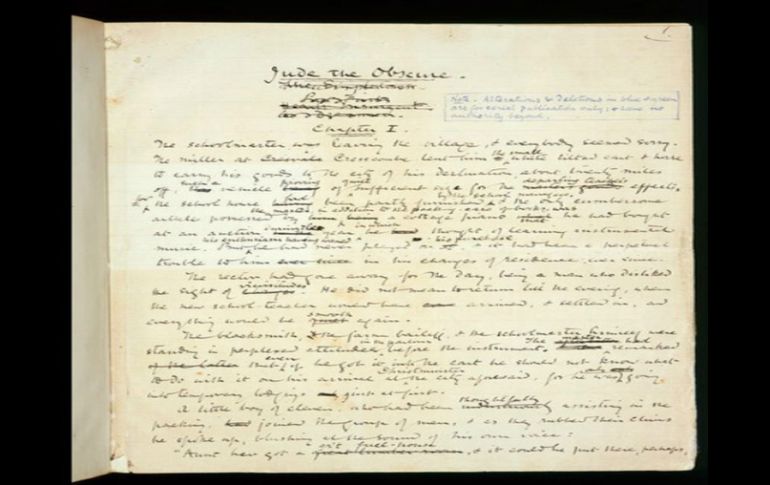 1.
Jude the Obscure.
The Simpletons
Hearts Insurgent
Note. Alterations & deletions in blue & green
are for serial publication only; & have no
authority beyond.
Chapter I.
The schoolmaster was leaving the village, & everybody seemed sorry.
The miller at Cresscombe lent him the small white tilted cart & horse
to carry his goods to the city of his destination, about twenty miles
off, such a vehicle proving of quite sufficient size for the departing teacher's effects.
the school house had been partly furnished by the school managers, & the only cumbersome
article possessed by the master, in addition to the packing-case of books, was a cottage piano that he had bought
at an auction during the year in which he thought of learning instrumental
music. But the enthusiasm having waned he had never played & had been a perpetual
trouble to him ever since in his changes of residence
The rector had gone away for the day, being a man who disliked
the sight of changes. He did not mean to return till the evening, when
the new school-teacher would have arrived, & settled in, and
everything would be smooth again.
The blacksmith, the farm bailiff, & the schoolmaster himself were
standing in perplexed attitudes in the parlour before the instrument. The master had remarked
that even if he got it into the cart he should not know what
to do with it on his arrival at Christminster the city aforesaid, for he was only going
into temporary lodgings just at first.
A little boy of eleven, who had been thoughtfully assisting in the
packing, joined the group of men, & as they rubbed their chins
he spoke up, blushing at the sound of his own voice:
"Aunt have got a great fuel-house, & it could be put there, perhaps,